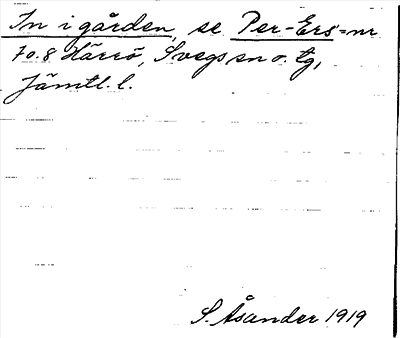 In i gården, se Per-Ers = nr
7 o. 8 Härrö, Svegs sn o. tg,
Jämtl. l.
S. Åsander 1919